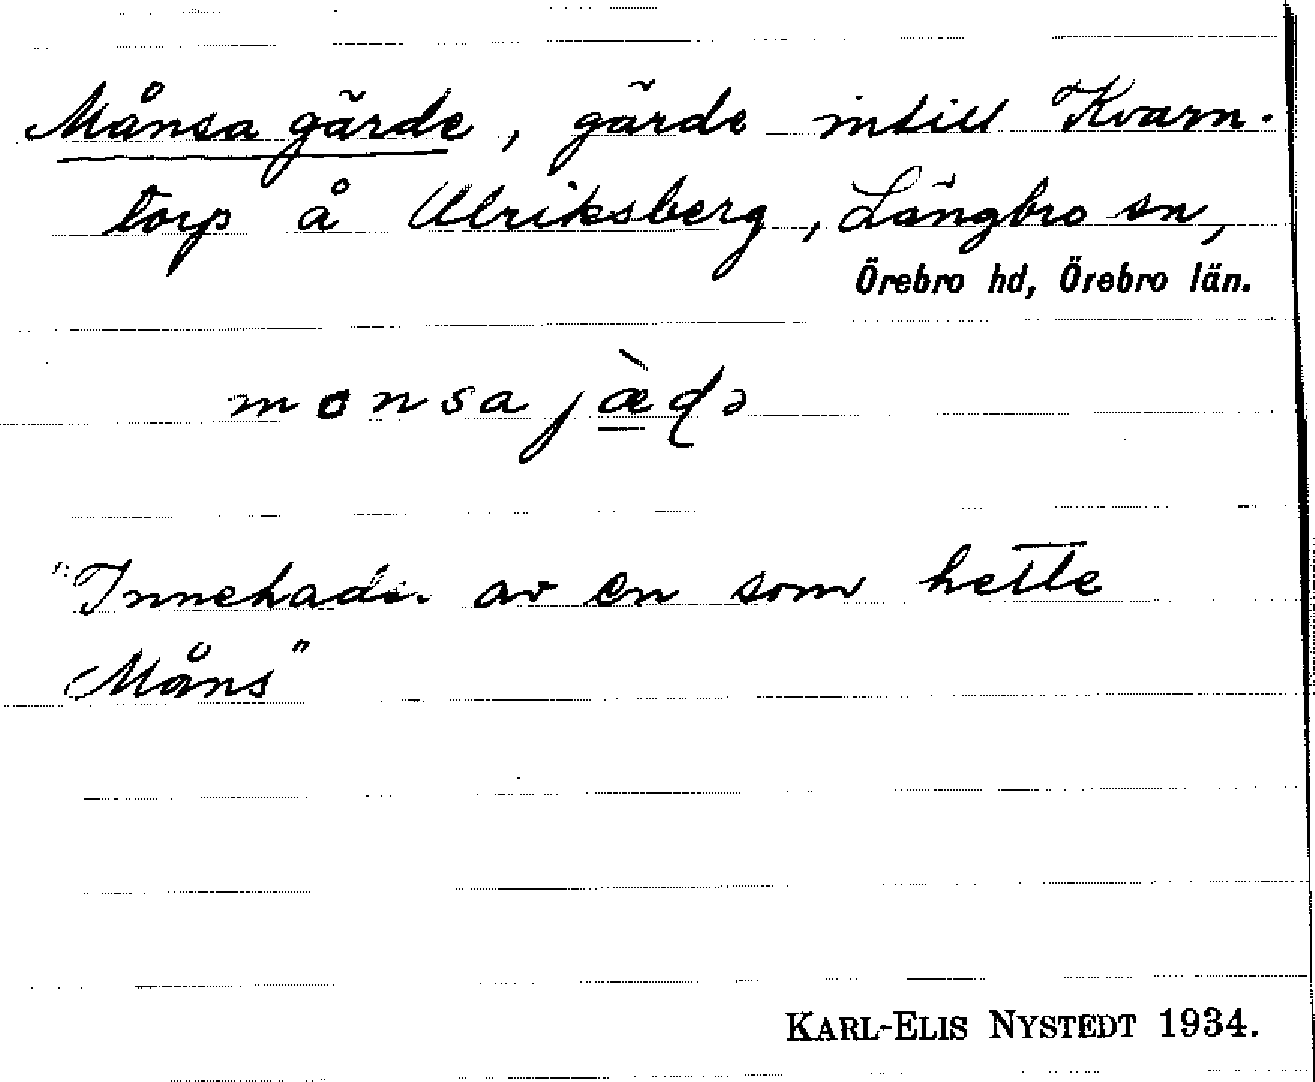 Månsa gärde, gärde intill Kvarn-
torp å Ulriksberg, Längbro sn,
Örebro hd, Örebro län.
monsajæ̀ɖə
"Innehades av en som hette
Måns"
KARL-ELIS NYSTEDT 1934.